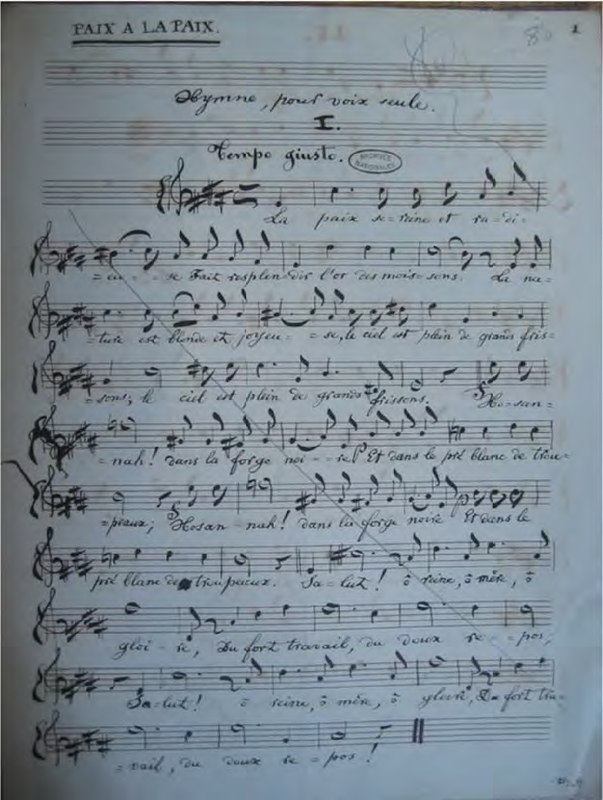 PAIX A LA PAIX.
80
1
Hymne, pour voix seule.
I.
Tempo giusto.
ARCHIVES NATIONALES
La paix se=reine et ra=di=
=eu - se Fait resplen=dir l'or des mois=sons. La na=
=ture est blonde et joyeu - =se, le ciel est plein de grands fris=
=sons; le ciel est plein de grands frissons. Ho=san=
=nah! dans la forge noi - re! Et dans le pré blanc de trou=
=peaux; Hosan=nah! dans la forge noire Et dans le
pré blanc de troupeaux. Sa=lut! ô reine, ô mère, ô
gloi - re, Du fort travail, du doux re - pos,
Sa=lut! ô reine, ô mère, ô gloire, Du fort tra=
=vail, du doux re=pos!